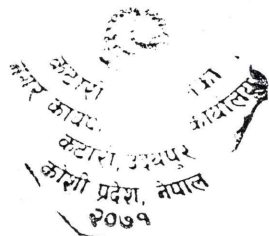 कटारी
नगर कार्यपा
कार्यालय
कटारी, उदयपुर
कोशी प्रदेश, नेपाल
२०७१